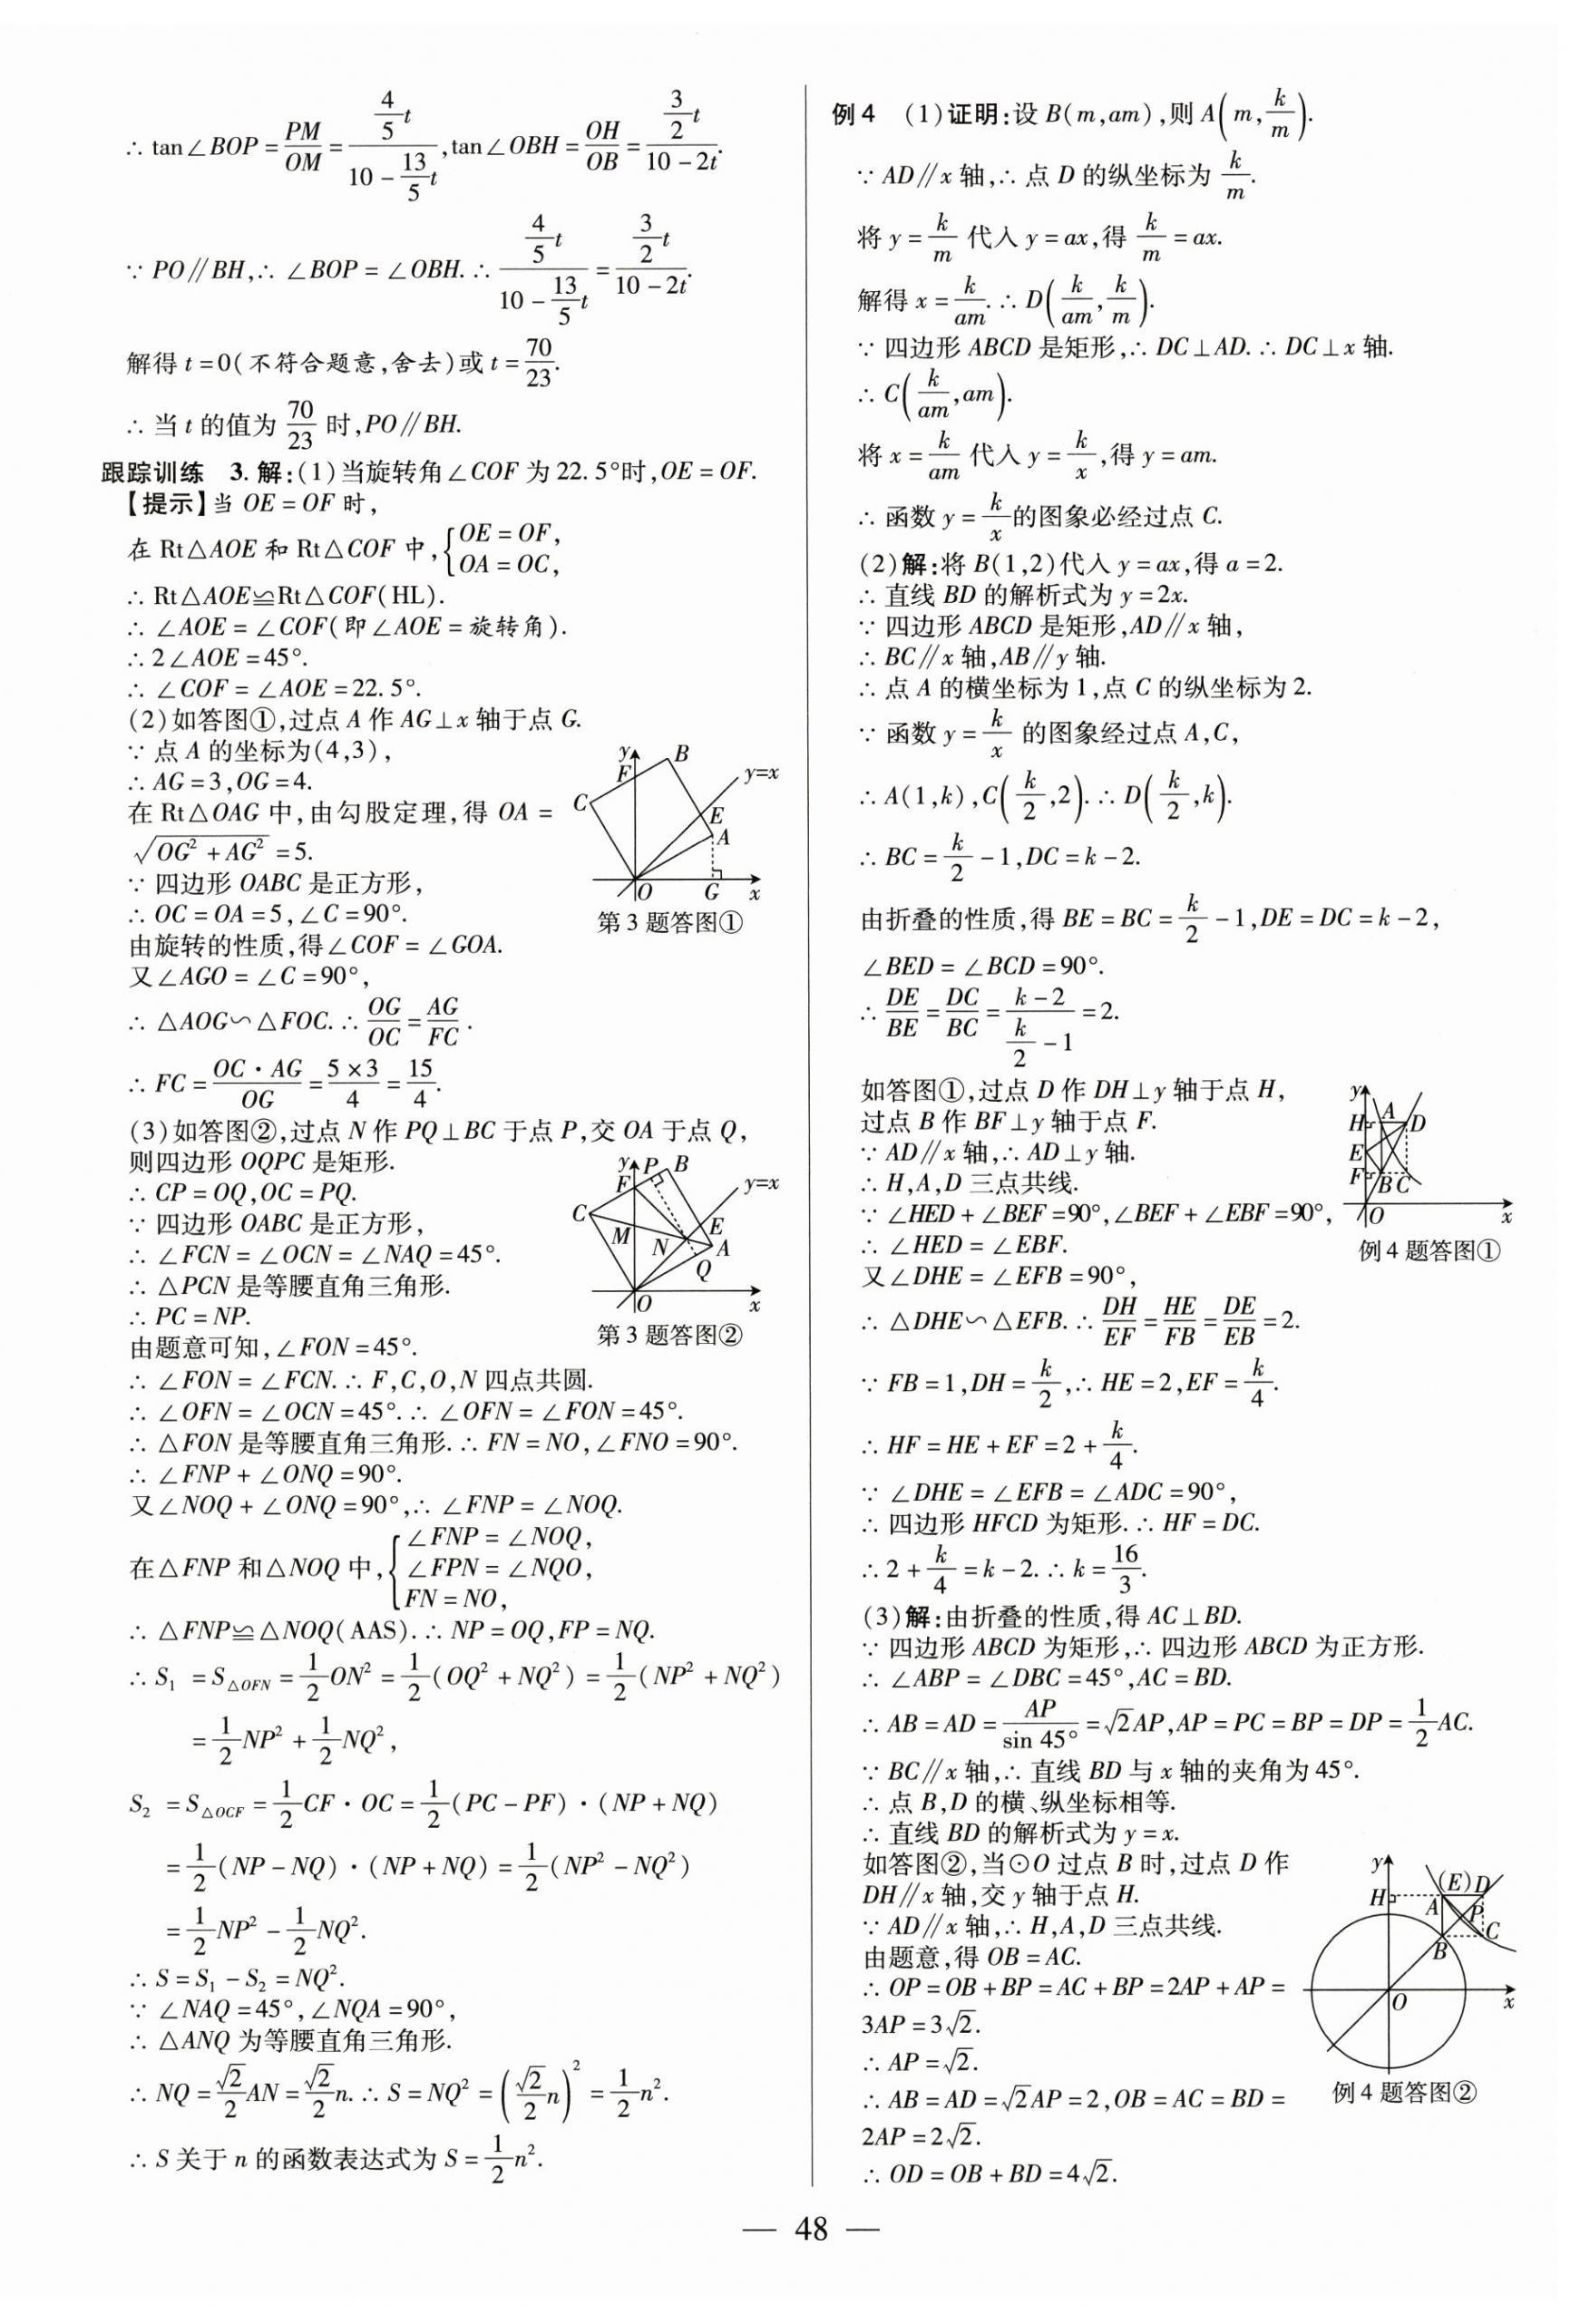 ∴ tan∠BOP = PM/OM = (4/5 t)/(10 - 13/5 t), tan∠OBH = OH/OB = (3/2 t)/(10 - 2t).
∵ PO∥BH,∴ ∠BOP = ∠OBH. ∴ (4/5 t)/(10 - 13/5 t) = (3/2 t)/(10 - 2t).
解得 t = 0(不符合题意,舍去)或 t = 70/23.
∴ 当 t 的值为 70/23 时,PO∥BH.
跟踪训练 3. 解:(1)当旋转角∠COF 为 22. 5°时,OE = OF.
【提示】当 OE = OF 时,
在 Rt△AOE 和 Rt△COF 中,{OE = OF,
OA = OC,
∴ Rt△AOE≌Rt△COF(HL).
∴ ∠AOE = ∠COF(即∠AOE = 旋转角).
∴ 2∠AOE = 45°.
∴ ∠COF = ∠AOE = 22. 5°.
(2)如答图①,过点 A 作 AG⊥x 轴于点 G.
∵ 点 A 的坐标为(4,3),
∴ AG = 3,OG = 4.
在 Rt△OAG 中,由勾股定理,得 OA =
√(OG² + AG²) = 5.
∵ 四边形 OABC 是正方形,
∴ OC = OA = 5,∠C = 90°.
由旋转的性质,得∠COF = ∠GOA.
又∠AGO = ∠C = 90°,
∴ △AOG∽△FOC. ∴ OG/OC = AG/FC.
∴ FC = OC · AG/OG = 5 × 3/4 = 15/4.
y
B
F
y=x
C
E
A
O
G
x
第 3 题答图①
(3)如答图②,过点 N 作 PQ⊥BC 于点 P,交 OA 于点 Q,
则四边形 OQPC 是矩形.
∴ CP = OQ,OC = PQ.
∵ 四边形 OABC 是正方形,
∴ ∠FCN = ∠OCN = ∠NAQ = 45°.
∴ △PCN 是等腰直角三角形.
∴ PC = NP.
由题意可知,∠FON = 45°.
y
P
B
F
y=x
C
M
N
E
A
Q
O
x
第 3 题答图②
∴ ∠FON = ∠FCN. ∴ F,C,O,N 四点共圆.
∴ ∠OFN = ∠OCN = 45°. ∴ ∠OFN = ∠FON = 45°.
∴ △FON 是等腰直角三角形. ∴ FN = NO,∠FNO = 90°.
∴ ∠FNP + ∠ONQ = 90°.
又∠NOQ + ∠ONQ = 90°,∴ ∠FNP = ∠NOQ.
在△FNP 和△NOQ 中,{∠FNP = ∠NOQ,
∠FPN = ∠NQO,
FN = NO,
∴ △FNP≌△NOQ(AAS). ∴ NP = OQ,FP = NQ.
∴ S₁ = S△OFN = 1/2 ON² = 1/2(OQ² + NQ²) = 1/2(NP² + NQ²)
= 1/2 NP² + 1/2 NQ²,
S₂ = S△OCF = 1/2 CF · OC = 1/2(PC - PF) · (NP + NQ)
= 1/2(NP - NQ) · (NP + NQ) = 1/2(NP² - NQ²)
= 1/2 NP² - 1/2 NQ².
∴ S = S₁ - S₂ = NQ².
∵ ∠NAQ = 45°,∠NQA = 90°,
∴ △ANQ 为等腰直角三角形.
∴ NQ = √2/2 AN = √2/2 n. ∴ S = NQ² = (√2/2 n)² = 1/2 n².
∴ S 关于 n 的函数表达式为 S = 1/2 n².
例 4 (1)证明:设 B(m,am),则 A(m,k/m).
∵ AD∥x 轴,∴ 点 D 的纵坐标为 k/m.
将 y = k/m 代入 y = ax,得 k/m = ax.
解得 x = k/am. ∴ D(k/am,k/m).
∵ 四边形 ABCD 是矩形,∴ DC⊥AD. ∴ DC⊥x 轴.
∴ C(k/am,am).
将 x = k/am 代入 y = k/x,得 y = am.
∴ 函数 y = k/x 的图象必经过点 C.
(2)解:将 B(1,2)代入 y = ax,得 a = 2.
∴ 直线 BD 的解析式为 y = 2x.
∵ 四边形 ABCD 是矩形,AD∥x 轴,
∴ BC∥x 轴,AB∥y 轴.
∴ 点 A 的横坐标为 1,点 C 的纵坐标为 2.
∵ 函数 y = k/x 的图象经过点 A,C,
∴ A(1,k),C(k/2,2). ∴ D(k/2,k).
∴ BC = k/2 - 1,DC = k - 2.
由折叠的性质,得 BE = BC = k/2 - 1,DE = DC = k - 2,
∠BED = ∠BCD = 90°.
∴ DE/BE = DC/BC = (k - 2)/(k/2 - 1) = 2.
如答图①,过点 D 作 DH⊥y 轴于点 H,
过点 B 作 BF⊥y 轴于点 F.
∵ AD∥x 轴,∴ AD⊥y 轴.
∴ H,A,D 三点共线.
∵ ∠HED + ∠BEF = 90°,∠BEF + ∠EBF = 90°,
∴ ∠HED = ∠EBF.
又∠DHE = ∠EFB = 90°,
y
H
A
D
E
F
B
C
O
x
例 4 题答图①
∴ △DHE∽△EFB. ∴ DH/EF = HE/FB = DE/EB = 2.
∵ FB = 1,DH = k/2,∴ HE = 2,EF = k/4.
∴ HF = HE + EF = 2 + k/4.
∵ ∠DHE = ∠EFB = ∠ADC = 90°,
∴ 四边形 HFCD 为矩形. ∴ HF = DC.
∴ 2 + k/4 = k - 2. ∴ k = 16/3.
(3)解:由折叠的性质,得 AC⊥BD.
∵ 四边形 ABCD 为矩形,∴ 四边形 ABCD 为正方形.
∴ ∠ABP = ∠DBC = 45°,AC = BD.
∴ AB = AD = AP/sin 45° = √2AP,AP = PC = BP = DP = 1/2 AC.
∵ BC∥x 轴,∴ 直线 BD 与 x 轴的夹角为 45°.
∴ 点 B,D 的横、纵坐标相等.
∴ 直线 BD 的解析式为 y = x.
如答图②,当⊙O 过点 B 时,过点 D 作
DH∥x 轴,交 y 轴于点 H.
∵ AD∥x 轴,∴ H,A,D 三点共线.
由题意,得 OB = AC.
∴ OP = OB + BP = AC + BP = 2AP + AP =
3AP = 3√2.
∴ AP = √2.
∴ AB = AD = √2AP = 2,OB = AC = BD =
2AP = 2√2.
∴ OD = OB + BD = 4√2.
y
H
(E)
D
A
P
C
B
O
x
例 4 题答图②
— 48 —